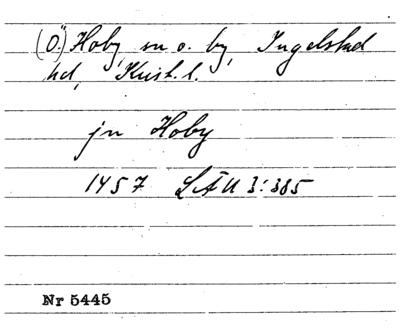 (Ö.) Hoby, sn o. by, Ingelstad
hd, Krist. l.
jn Hoby
1457 LÄU 3:385
Nr 5445